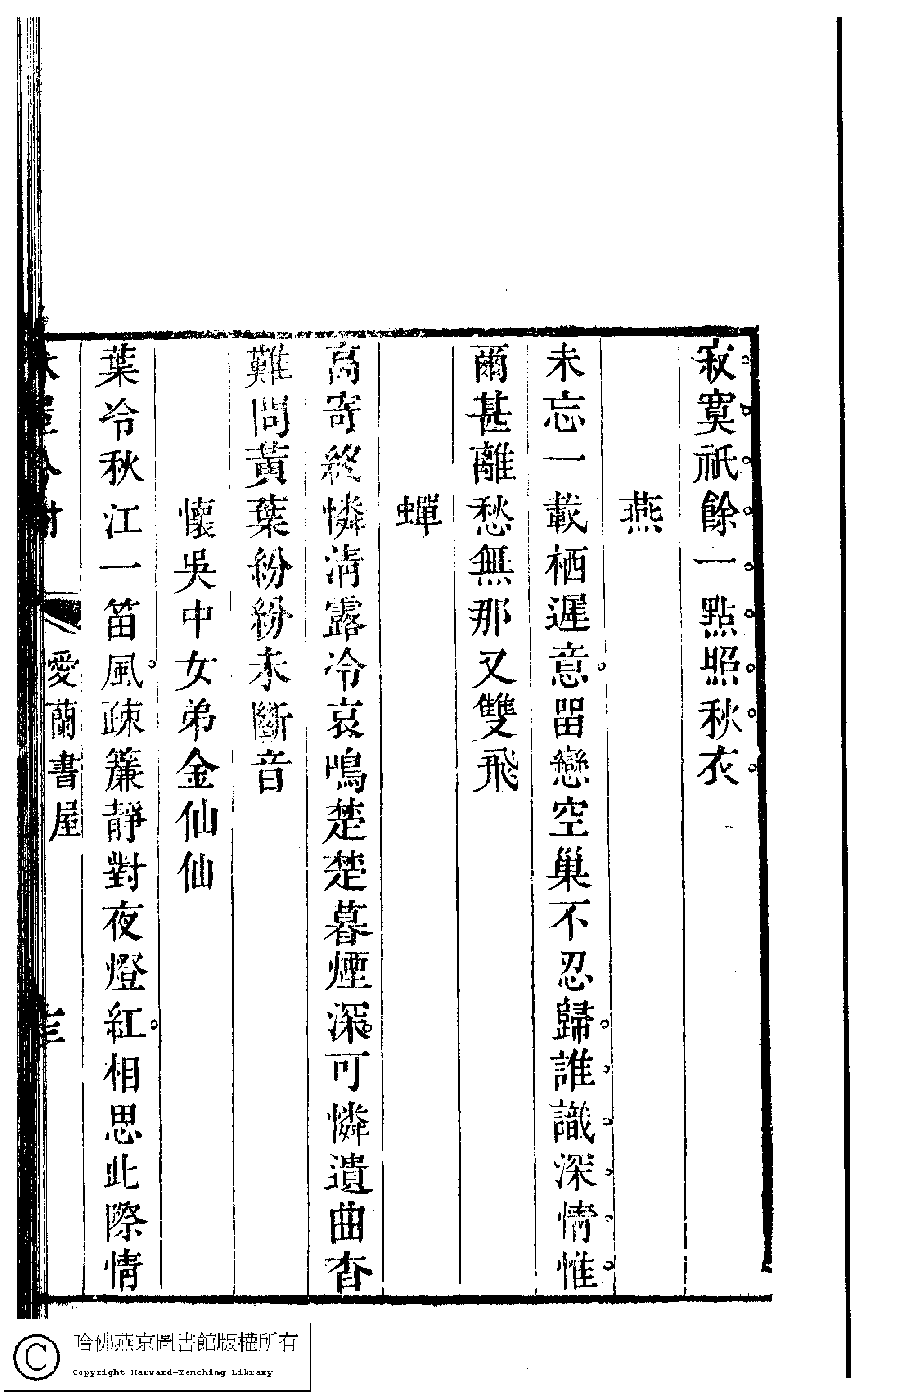 寂寞祇餘一點照秋衣
燕
未忘一載栖遲意留戀空巢不忍歸誰識深情惟
爾甚離愁無那又雙飛
蟬
高寄終憐清露冷哀鳴楚楚暮煙深可憐遺曲杳
難問黃葉紛紛未斷音
懷吳中女弟金仙仙
葉冷秋江一笛風疎簾靜對夜燈紅相思此際情
愛蘭書屋
哈佛燕京圖書館版權所有
Copyright Harvard-Yenching Library